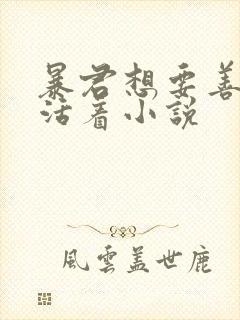 暴君想要善
活着小說
風雲蓋世鹿